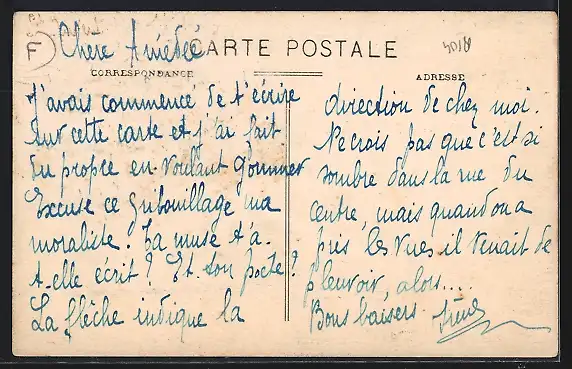 F
Chère Amédée
CARTE POSTALE
4018
CORRESPONDANCE
ADRESSE
J'avais commencé de t'écrire
sur cette carte et j'ai fait
du propre en voulant gommer
Excuse ce gribouillage ma
moraliste. Ta muse t'a-
t-elle écrit ? Et ton poète ?
La flèche indique la
direction de chez moi.
Ne crois pas que c'est si
sombre dans la rue du
centre, mais quand on a
pris les vues il venait de
pleuvoir, alors....
Bons baisers